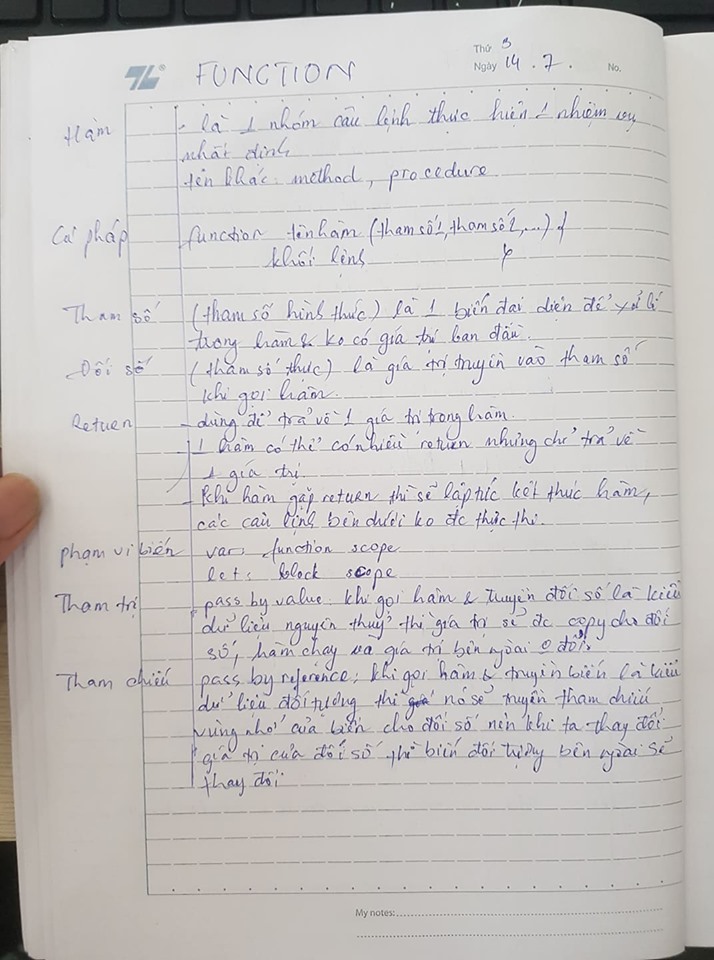 Thứ 3
TL® FUNCTION Ngày 14.7. No.
Hàm - là 1 nhóm câu lệnh thực hiện 1 nhiệm vụ
nhất định
tên khác: method, procedure
Cú pháp function tênhàm (tham số1, tham số2, ...) {
khối lệnh }
Tham số (tham số hình thức) là 1 biến đại diện để xử lí
trong hàm & ko có giá trị ban đầu.
Đối số (tham số thực) là giá trị truyền vào tham số
khi gọi hàm.
Return - dùng để trả về 1 giá trị trong hàm.
1 hàm có thể có nhiều return nhưng chỉ trả về
1 giá trị
- Khi hàm gặp return thì sẽ lập tức kết thúc hàm,
các câu lệnh bên dưới ko đc thực thi.
phạm vi biến var: function scope
let: block scope
Tham trị pass by value: khi gọi hàm & truyền đối số là kiểu
dữ liệu nguyên thuỷ thì giá trị sẽ đc copy cho đối
số, hàm chạy và giá trị bên ngoài đổi.
Tham chiếu pass by reference: khi gọi hàm & truyền biến là kiểu
dữ liệu đối tượng thì nó sẽ truyền tham chiếu
vùng nhớ của biến cho đối số nên khi ta thay đổi
giá trị của đối số thì biến đối tượng bên ngoài sẽ
thay đổi
My notes: